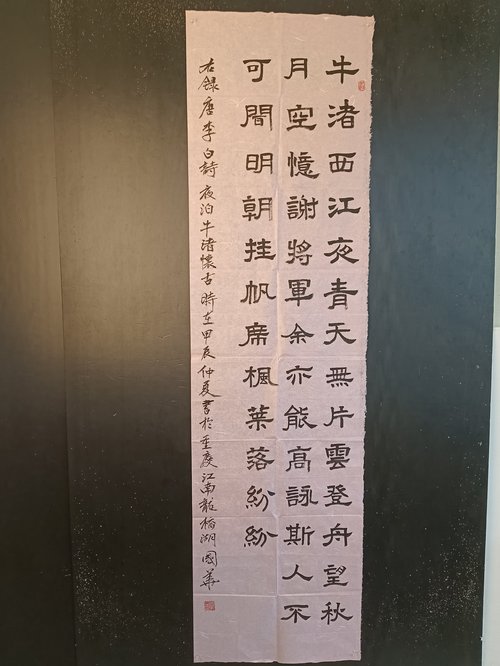 牛渚西江夜青天無片雲登舟望秋
月空憶謝將軍余亦能高詠斯人不
可聞明朝挂帆席楓葉落紛紛
右錄唐李白詩夜泊牛渚懷古時在甲辰仲夏書於重慶江南龍栖湖國華